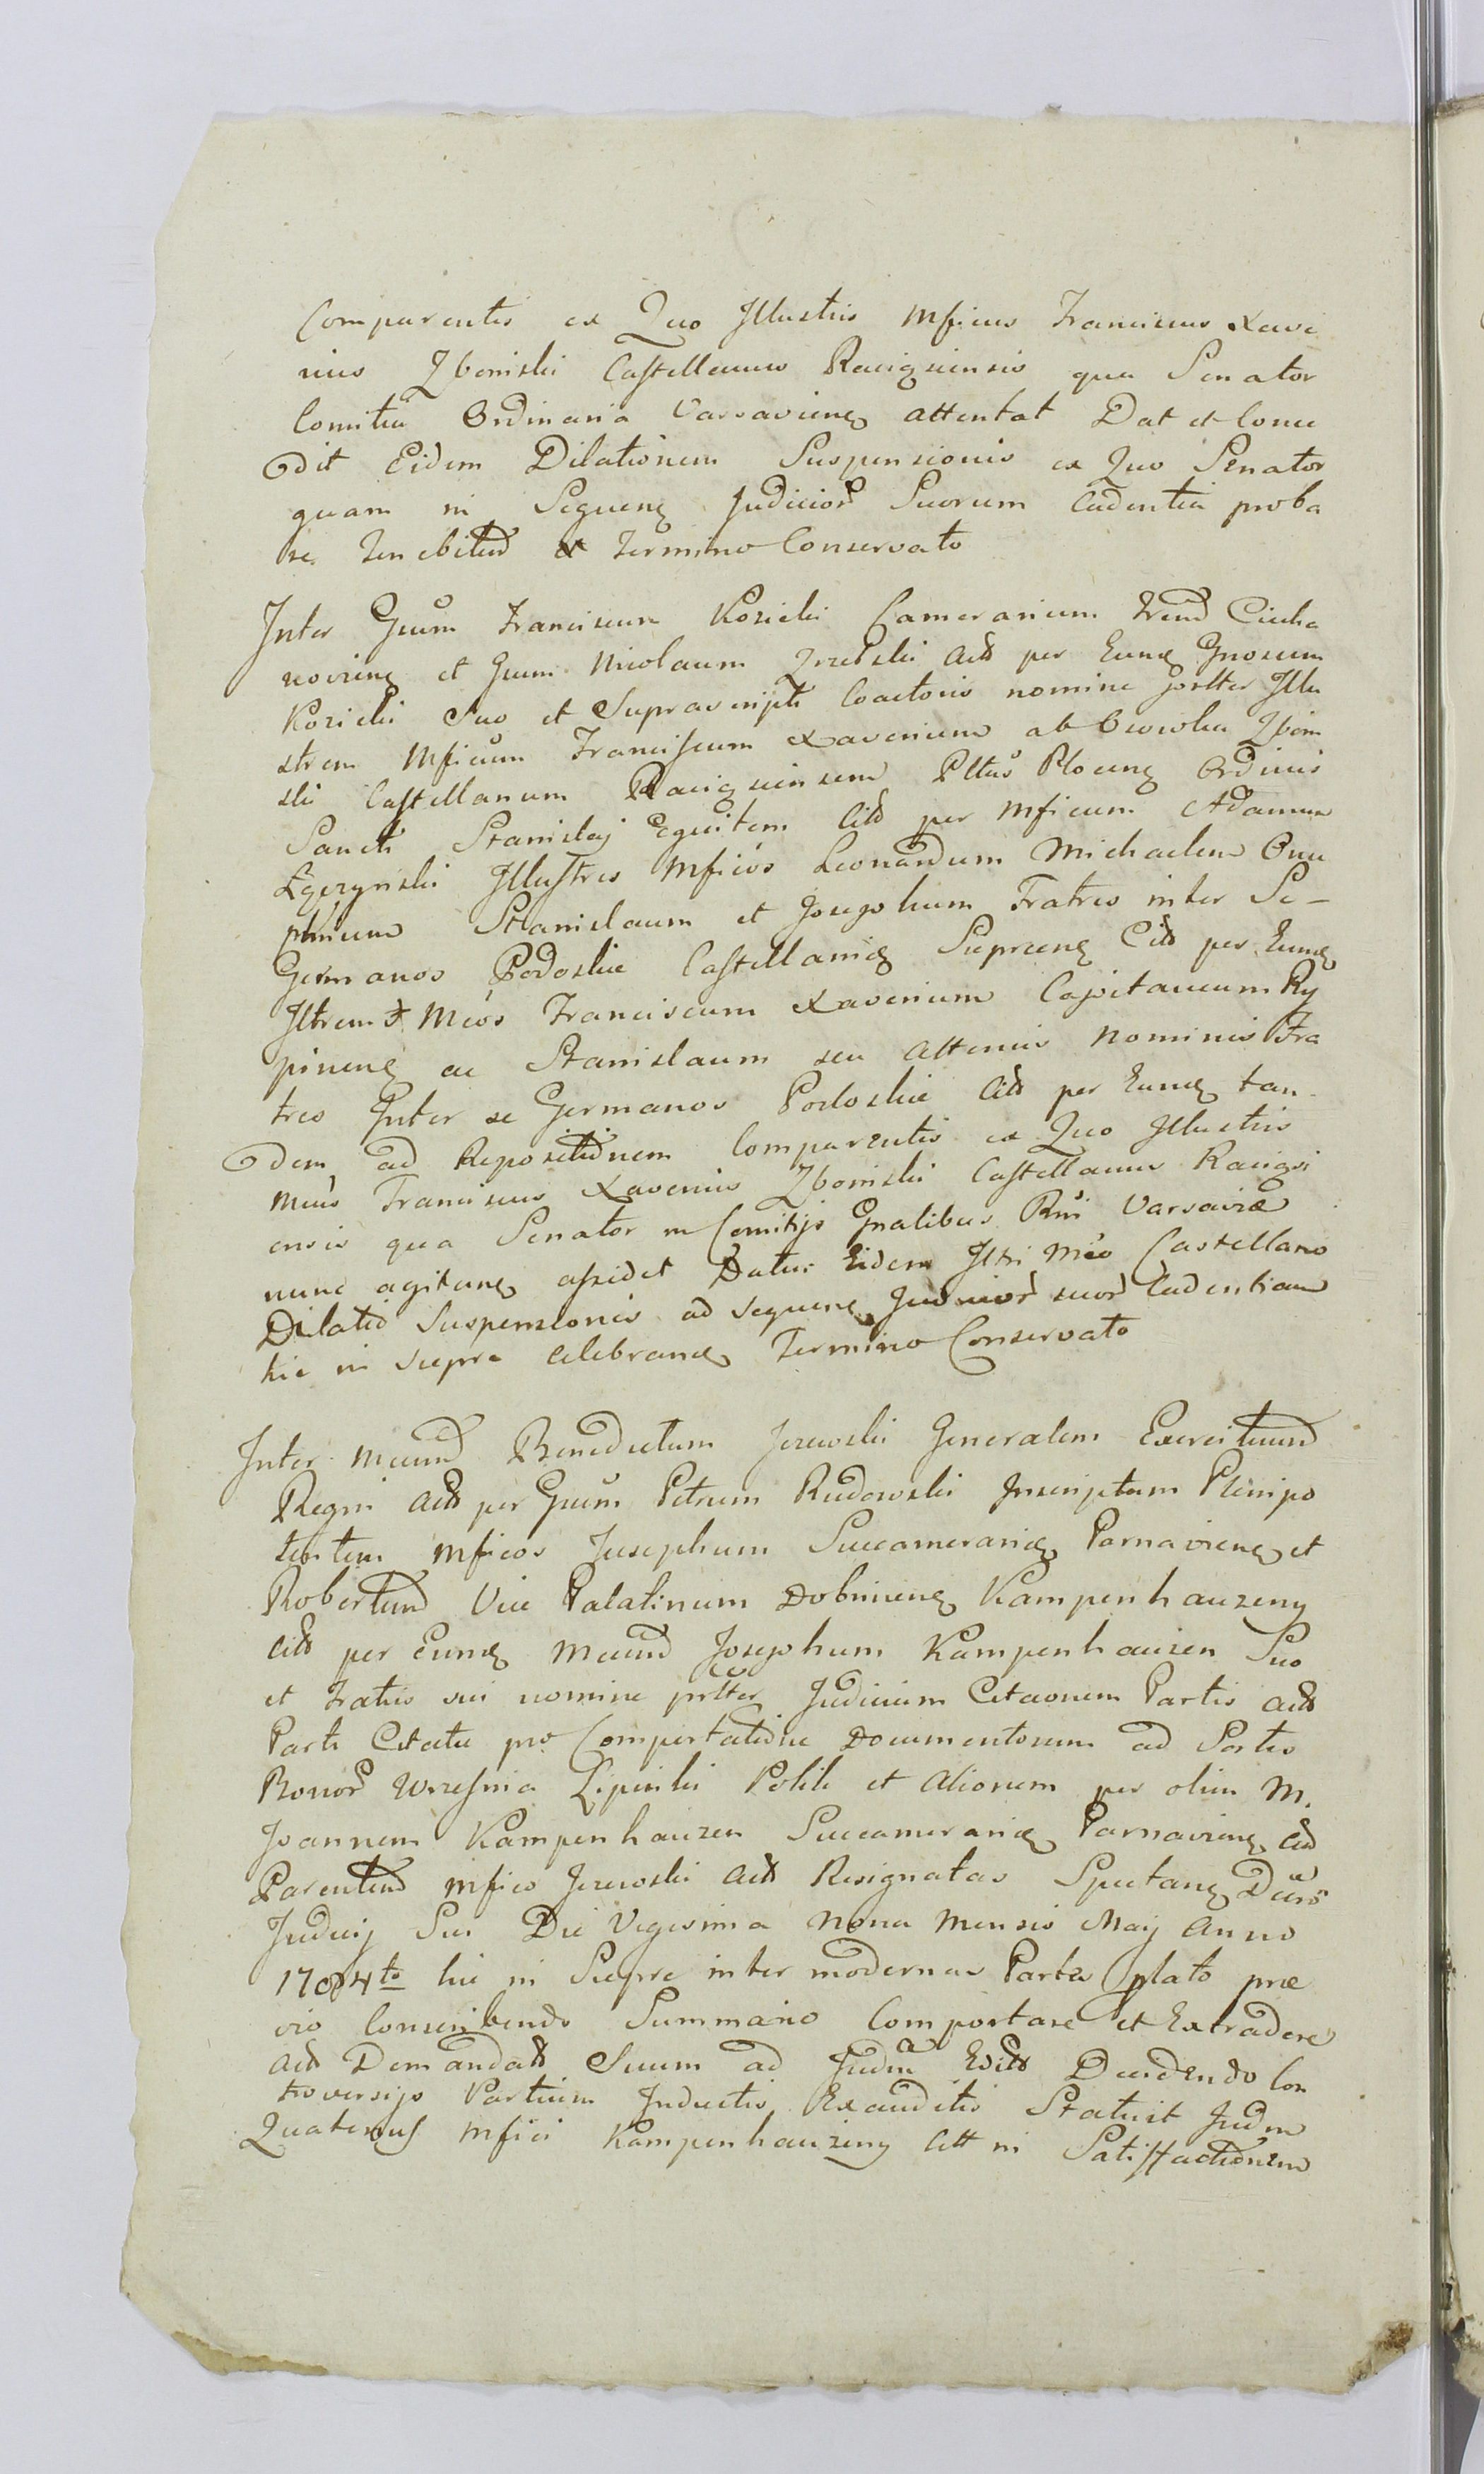 Comparentis ex Quo Illustris Mficus Franciscus Xave
rius Zboinski Castellanus Raciąsiensis qua Senator
Comitia Ordinaria Varsavieng attentat Dat et Conce
dit Eidem Dilationem Suspensionis ex Quo Senator
quam in Sequeng Judicior Suorum Cadentia proba
re tenebitur Termino Conservato
Inter Gsum Franciscum Kozicki Camerarium Terrae Ciecha
novieng et Gsum Nicolaum Act per Eundg Gnosum
Kozicki Suo et Suprascripti Coactoris nomine prtter Illu
strem Mficum Franciscum Xaverium ab Ossowka Zboin
ski Castellanum Raciąsiensem Pttus Ploceng Ordinis
Sancti Stanislaj Equitem Citt per Mficum Adamum
Łączynski Illustres Mficos Leonardum Michaelem Onu
phrium Stanislaum et Josephum Fratres inter Se -
Germanos Podoskie Castellanid Sieprceng Citt per Eundg
Iltrem et Mcos Franciscum Xaverium Capitaneum Ry
pineng ac Stanislaum seu alterius nominis Fra
tres Inter se Germanos Podoskie Citt per Eundg tan
dem ad Repositionem Comparentis ex Quo Illustris
Mcus Franciscus Xaverius Zboinski Castellanus Raciąsi
ensis qua Senator in Comitijs Gnalibus Rni Varsaviæ
nunc agitang assidet Datur Eidem Iltri Mco Castellano
Dilatio Suspensionis ad sequeng Judicior suor Cadentiam
hic in Sieprc celebrand Termino Conservato
Inter Mcum Benedictum Jezewski Generalem Exercituum
Regni Act per Gsum Petrum Rudowski Inscriptum Plenipo
tentem Mficos Josephum Succamerarid Parnavieng et
Robertum Vice Palatinum Dobrineng Kampenhauzeny
Citt per Eundg Mcum Josephum Kampenhauzen Suo
et Fratris sui nomine prtter Judicium Citaonem Partis Act
Parti Citatæ pro Comportatione Documentorum ad Sortes
Bonor Wrzesnia Lipinki Polik et Aliorum per olim M.
Joannem Kampenhauzen Succamerarid Parnavieng Citt
Parentem Mfico Jezewski Act Resignatas Spectang Decrō
Judicij Sui Die Vigesima Nona Mensis Maij Anno
1784to hic in Sieprc inter modernas Partes plato præ
vio Conscribendo Summario Comportare et Extradere
Act Demandatt Suum ad Judm Edito Decidendo Con
troversijs Partium Inductis Exauditis Statuit Judm
Quatenus Mfici Kampenhauzeny Citt in Satisfactionem